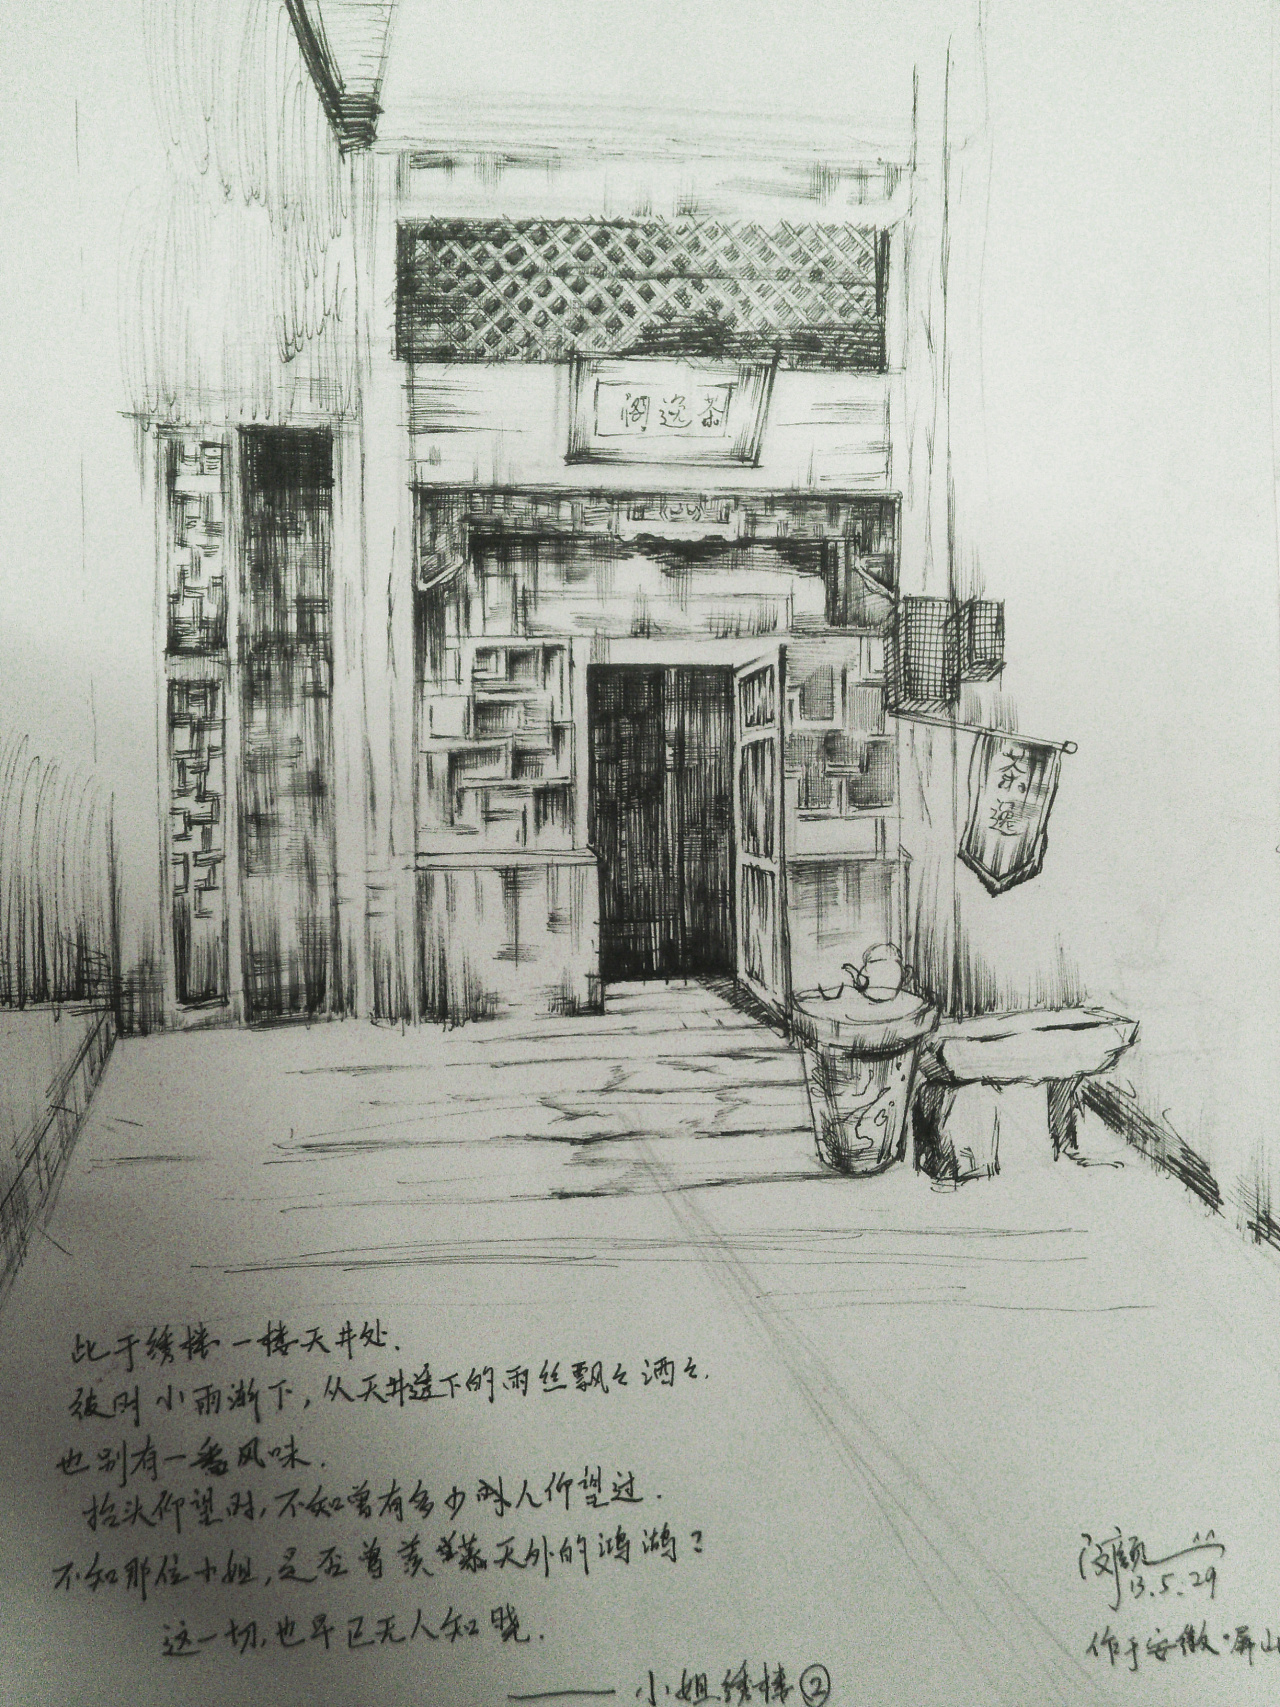 阁逸茶
茶逸
此于绣楼一楼天井处.
彼时小雨渐下,从天井透下的雨丝飘々洒々.
也别有一番风味.
抬头仰望时,不知曾有多少人仰望过.
不知那位小姐,是否曾羡慕天外的鸿鹄?
这一切,也早已无人知晓.
——小姐绣楼②
13.5.29
作于安徽·屏山